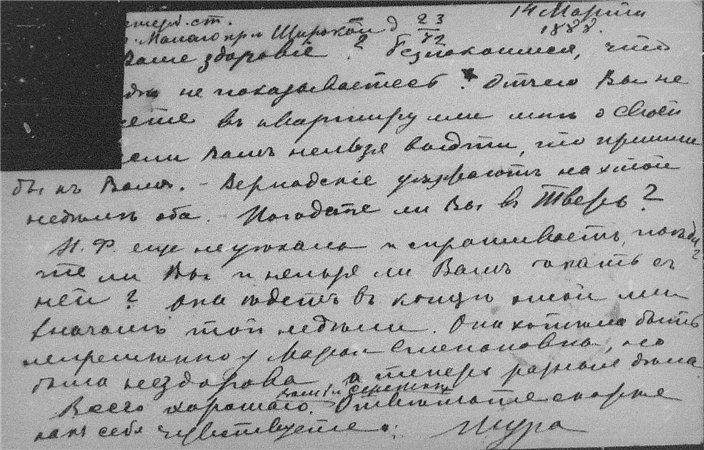 14 Марта 1888.
Малаго пр. Широкой д 23/72
Ваше здоровіе? Безпокоимся, что
не показываетесь. Отчего Вы не
въ квартиру или мнѣ о своей
если Вамъ нельзя выдти, то пришли
бы къ Вамъ. - Вернадскіе уѣзжаютъ на этой
недѣлѣ оба. Поѣдете ли Вы въ Тверь?
Н. Ф. еще не уѣхала и спрашиваетъ, поѣде-
те ли Вы и нельзя ли Вамъ ѣхать съ
ней? Она ѣдетъ въ концѣ этой или
вначалѣ той недѣли. Она хотѣла быть
непремѣнно у Марьи Степановны, но
была нездорова, а теперь разныя дѣла
Всего хорошаго. Отвѣчайте скорѣе
какъ себя чувствуете.
Шура